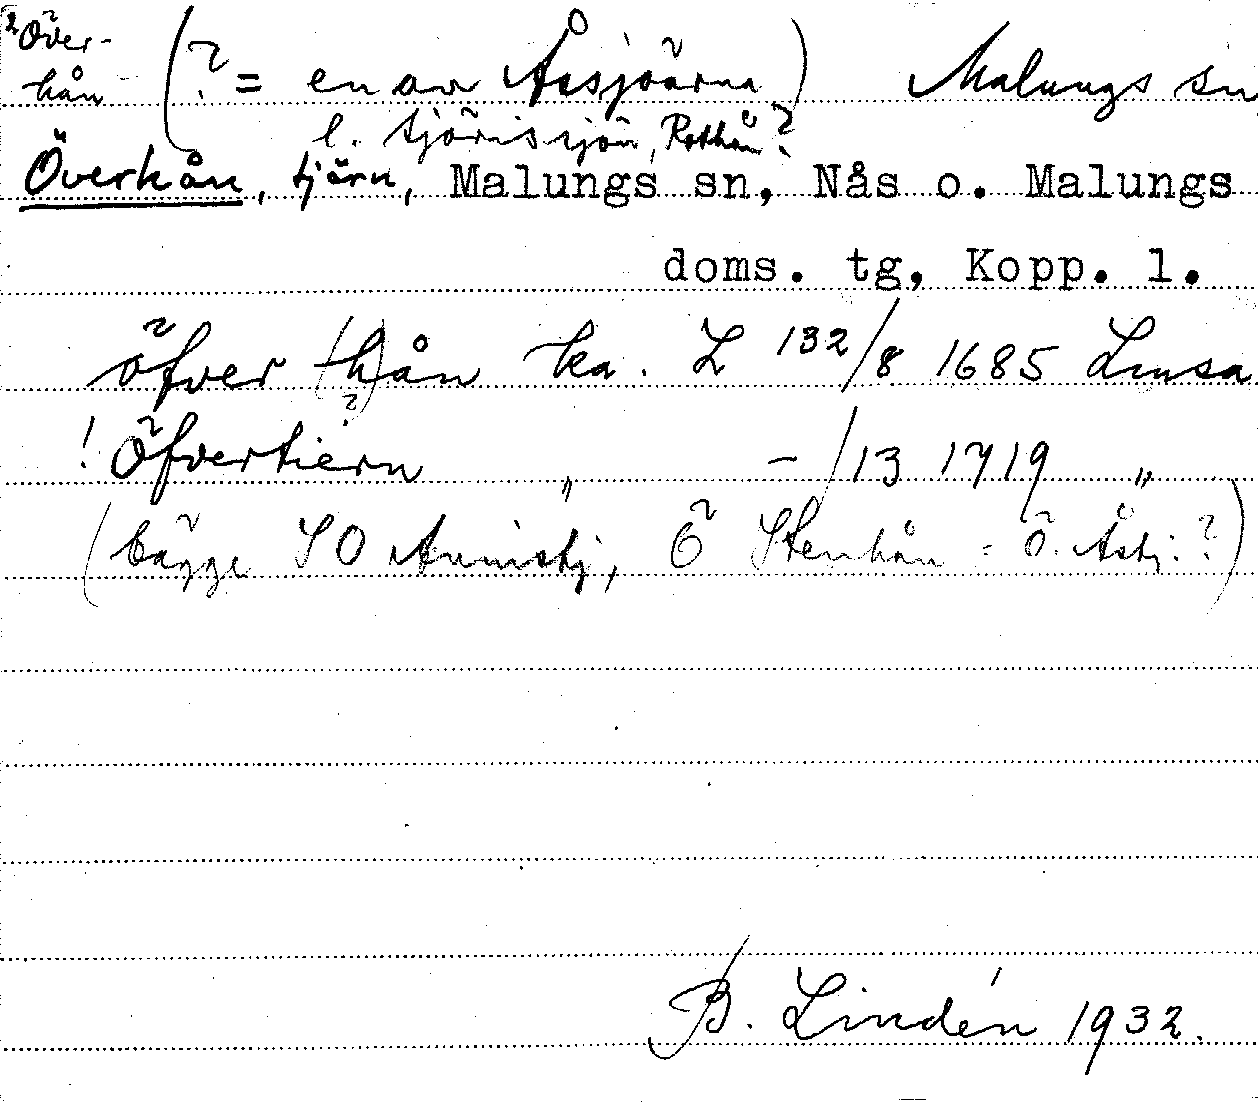 ²Över-
hån (? = en av Åssjöarna) Malungs sn
l. Tjärissjön, Rothån?
Överhån, tjärn, Malungs sn, Nås o. Malungs
doms. tg, Kopp. l.
öfver (h)ån ka. L 132/8 1685 Lmsa
(?)
! Öfvertiern " -/13 1719 "
(bägge SO Arnistj, Ö Stenhån = Ö. Åstj.?)
B. Lindén 1932.